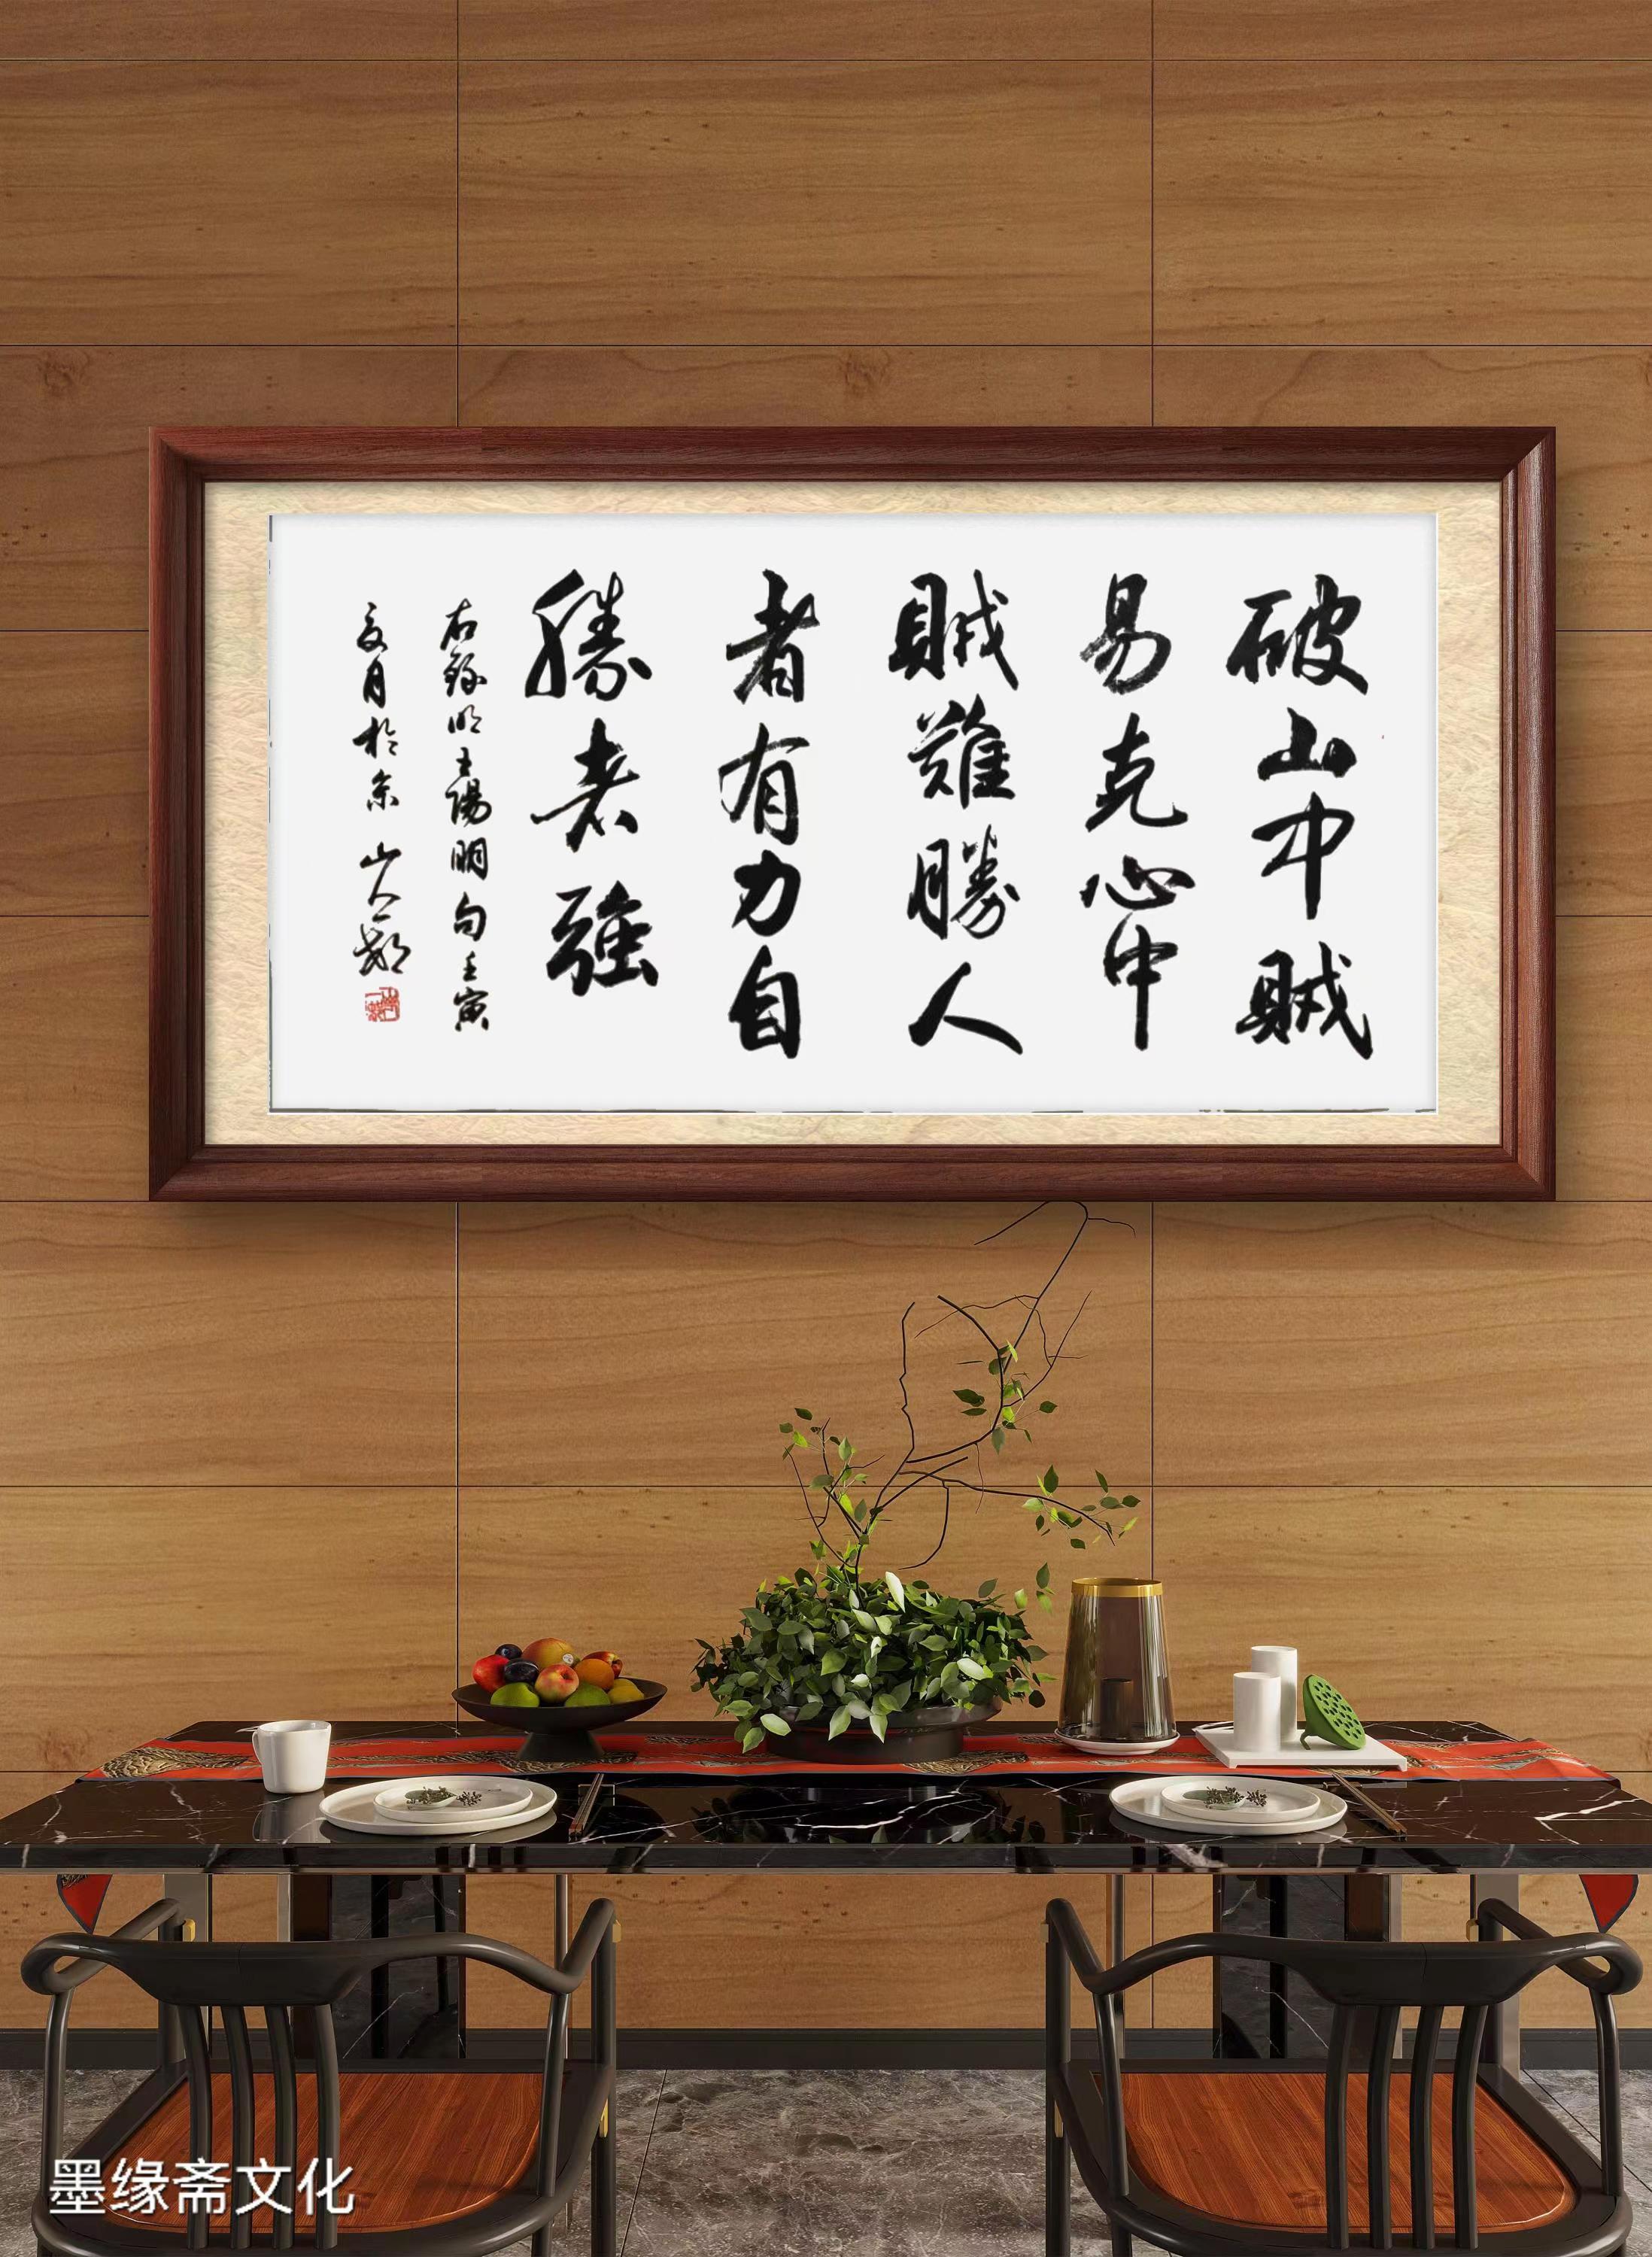 破山中賊
易克心中
賊難勝人
者有力自
勝者強
右錄明王陽明句壬寅
夏月於京 山人
墨缘斋文化